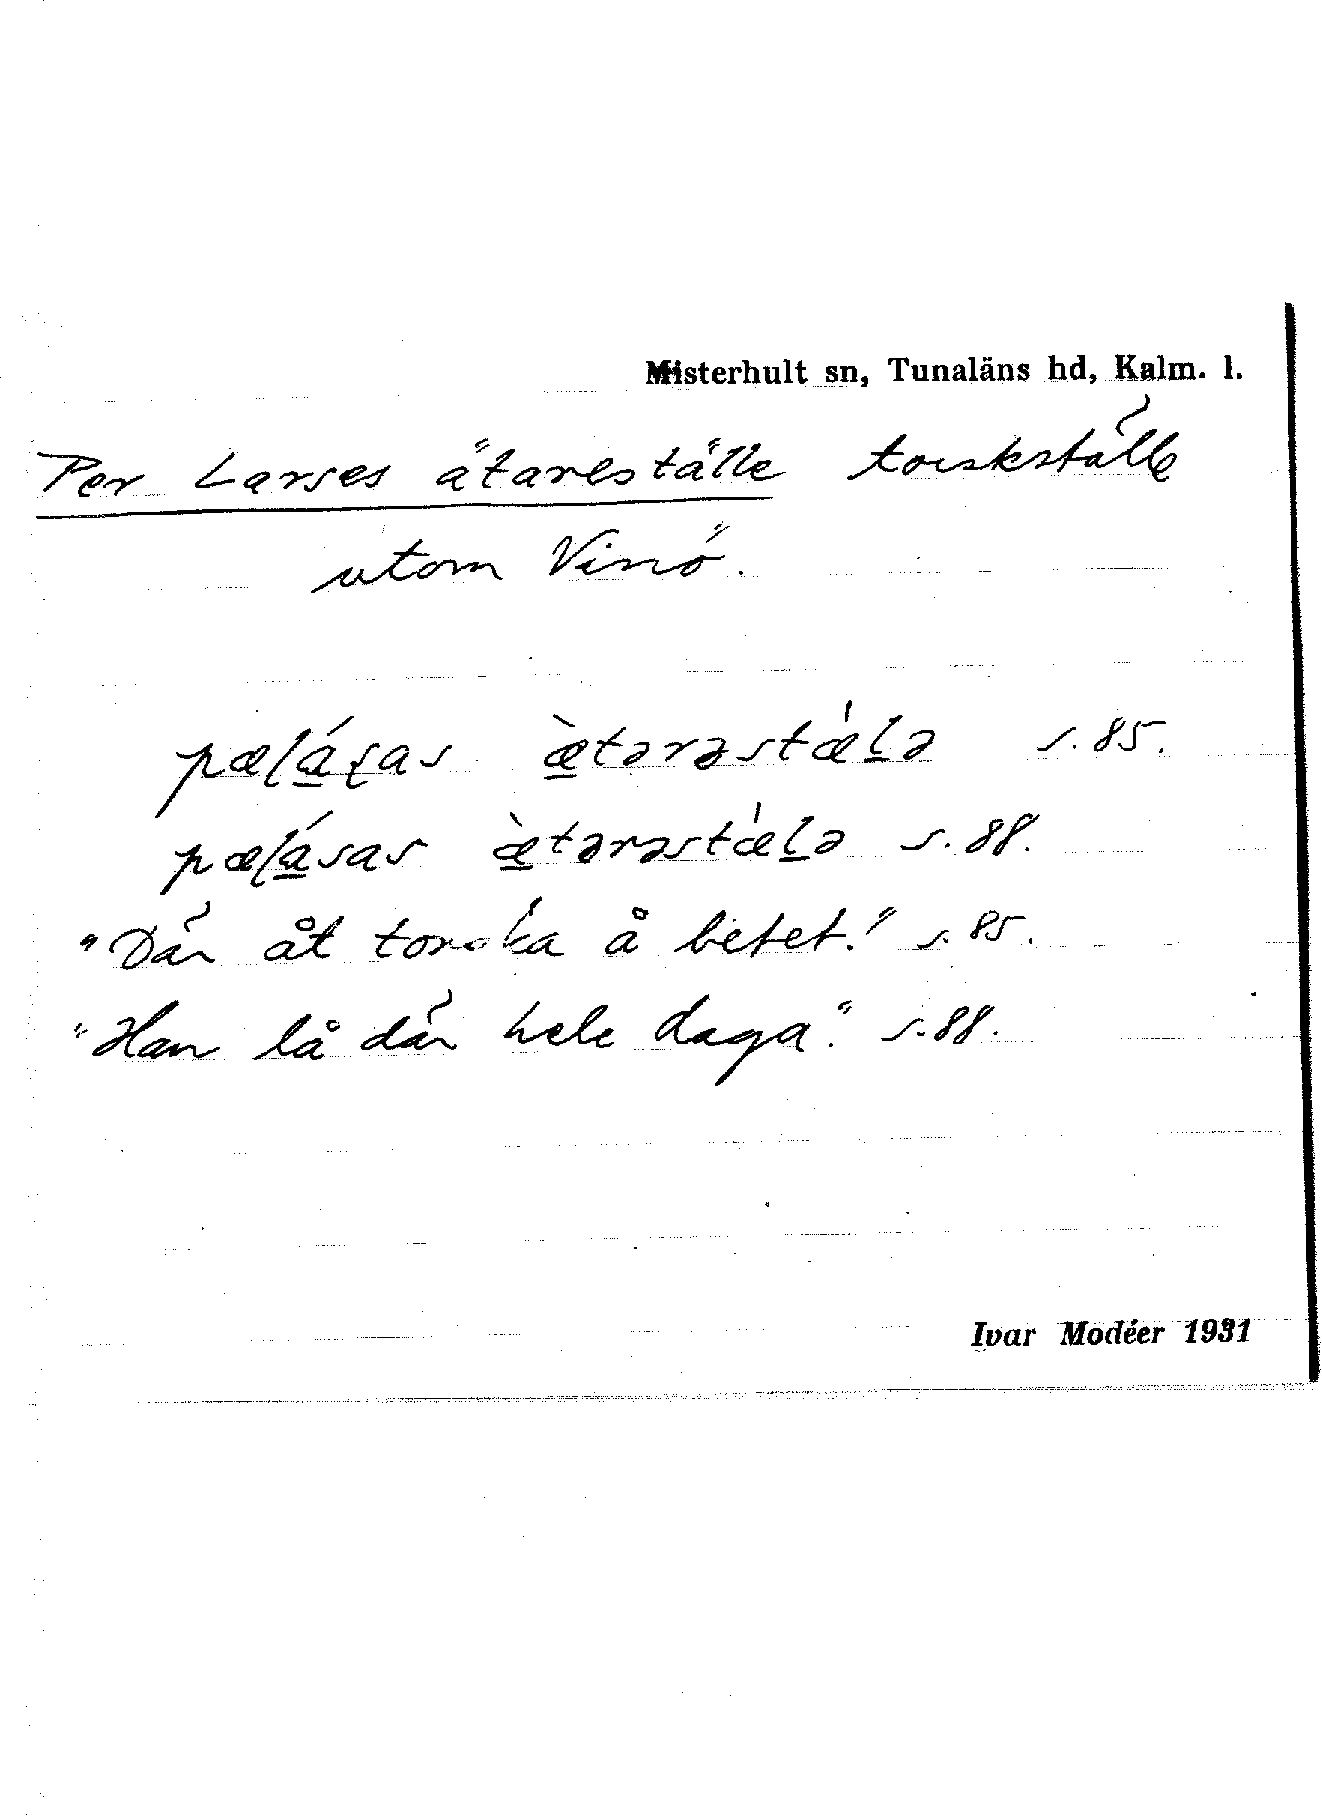 Misterhult sn, Tunaläns hd, Kalm. l.
Per Larses ätareställe torskställe
utom Vinö.
pælá̱ʂas æ̱̀tərəstæ̍ḻə s. 85.
pælá̱sas æ̱̀tərəstæ̍ḻə s. 88.
"Där åt torska å betet." s. 85.
"Han lå där hele daga." s. 88.
Ivar Modéer 1931